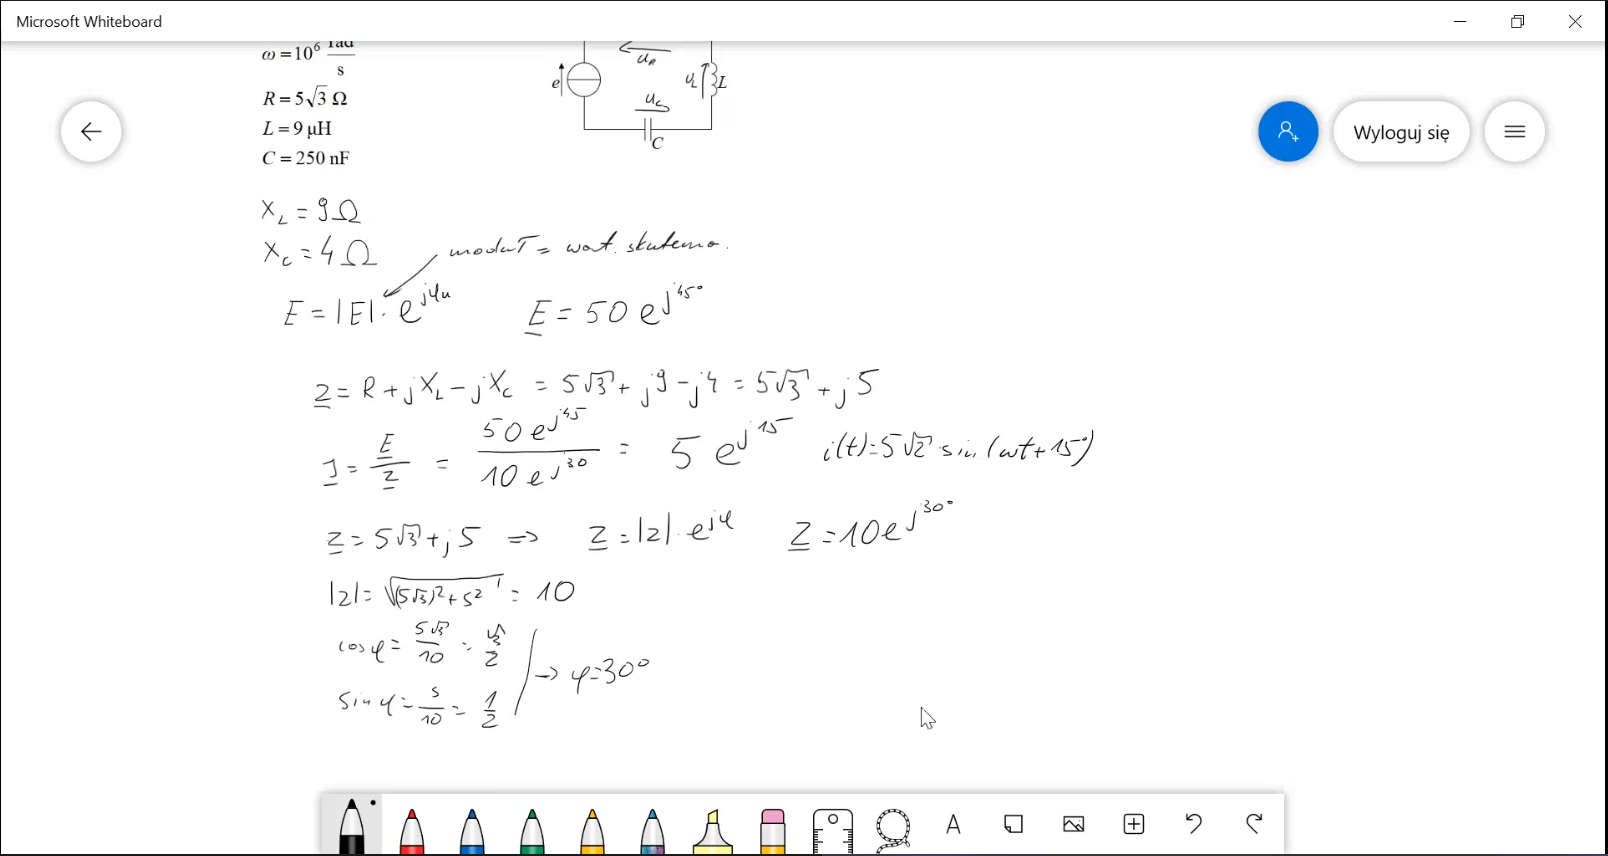 Microsoft Whiteboard
ω = 10⁶ rad/s
e u_R u_L L
R = 5√3 Ω
u_C
L = 9 μH
C
C = 250 nF
Wyloguj się
X_L = 9Ω
X_C = 4Ω
moduł = wart. skuteczna.
E = |E|·e^{jφu} E = 50 e^{j45°}
Z = R + jX_L − jX_C = 5√3 + j9 − j4 = 5√3 + j5
I = E/Z = 50 e^{j45}/10 e^{j30} = 5 e^{j15} i(t) = 5√2 sin(ωt + 15°)
Z = 5√3 + j5 ⇒ Z = |z|·e^{jφ} Z = 10e^{j30°}
|z| = √((5√3)² + 5²) = 10
cos φ = 5√3/10 = √3/2
→ φ = 30°
sin φ = 5/10 = 1/2
A